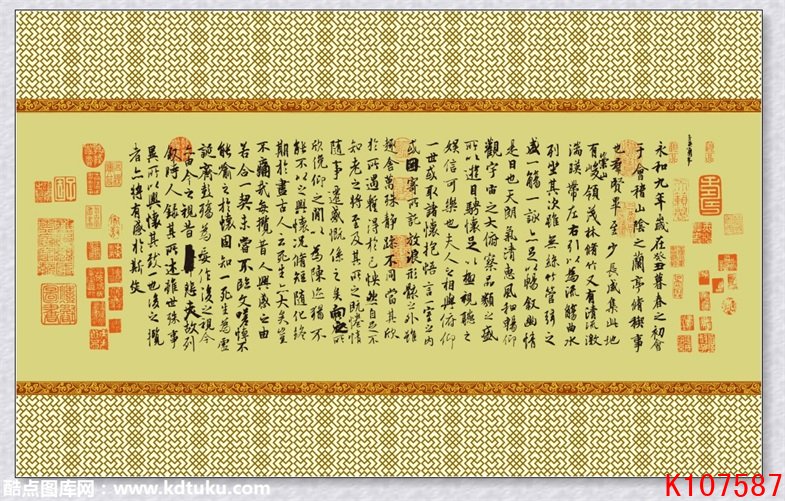 永和九年歲在癸丑暮春之初會
于會稽山陰之蘭亭脩稧事
也羣賢畢至少長咸集此地
有崇山峻領茂林脩竹又有清流激
湍暎帶左右引以為流觴曲水
列坐其次雖無絲竹管弦之
盛一觴一詠亦足以暢敘幽情
是日也天朗氣清惠風和暢仰
觀宇宙之大俯察品類之盛
所以遊目騁懷足以極視聽之
娛信可樂也夫人之相與俯仰
一世或取諸懷抱悟言一室之內
或因寄所託放浪形骸之外雖
趣舍萬殊靜躁不同當其欣
於所遇暫得於己怏然自足不
知老之將至及其所之既惓情
隨事遷感慨係之矣向之所
欣俛仰之閒以為陳迹猶不
能不以之興懷況脩短隨化終
期於盡古人云死生亦大矣豈
不痛哉每攬昔人興感之由
若合一契未嘗不臨文嗟悼不
能喻之於懷固知一死生為虛
誕齊彭殤為妄作後之視今
亦由今之視昔悲夫故列
敘時人錄其所述雖世殊事
異所以興懷其致一也後之攬
者亦將有感於斯文
酷点图库网：www.kdtuku.com
K107587